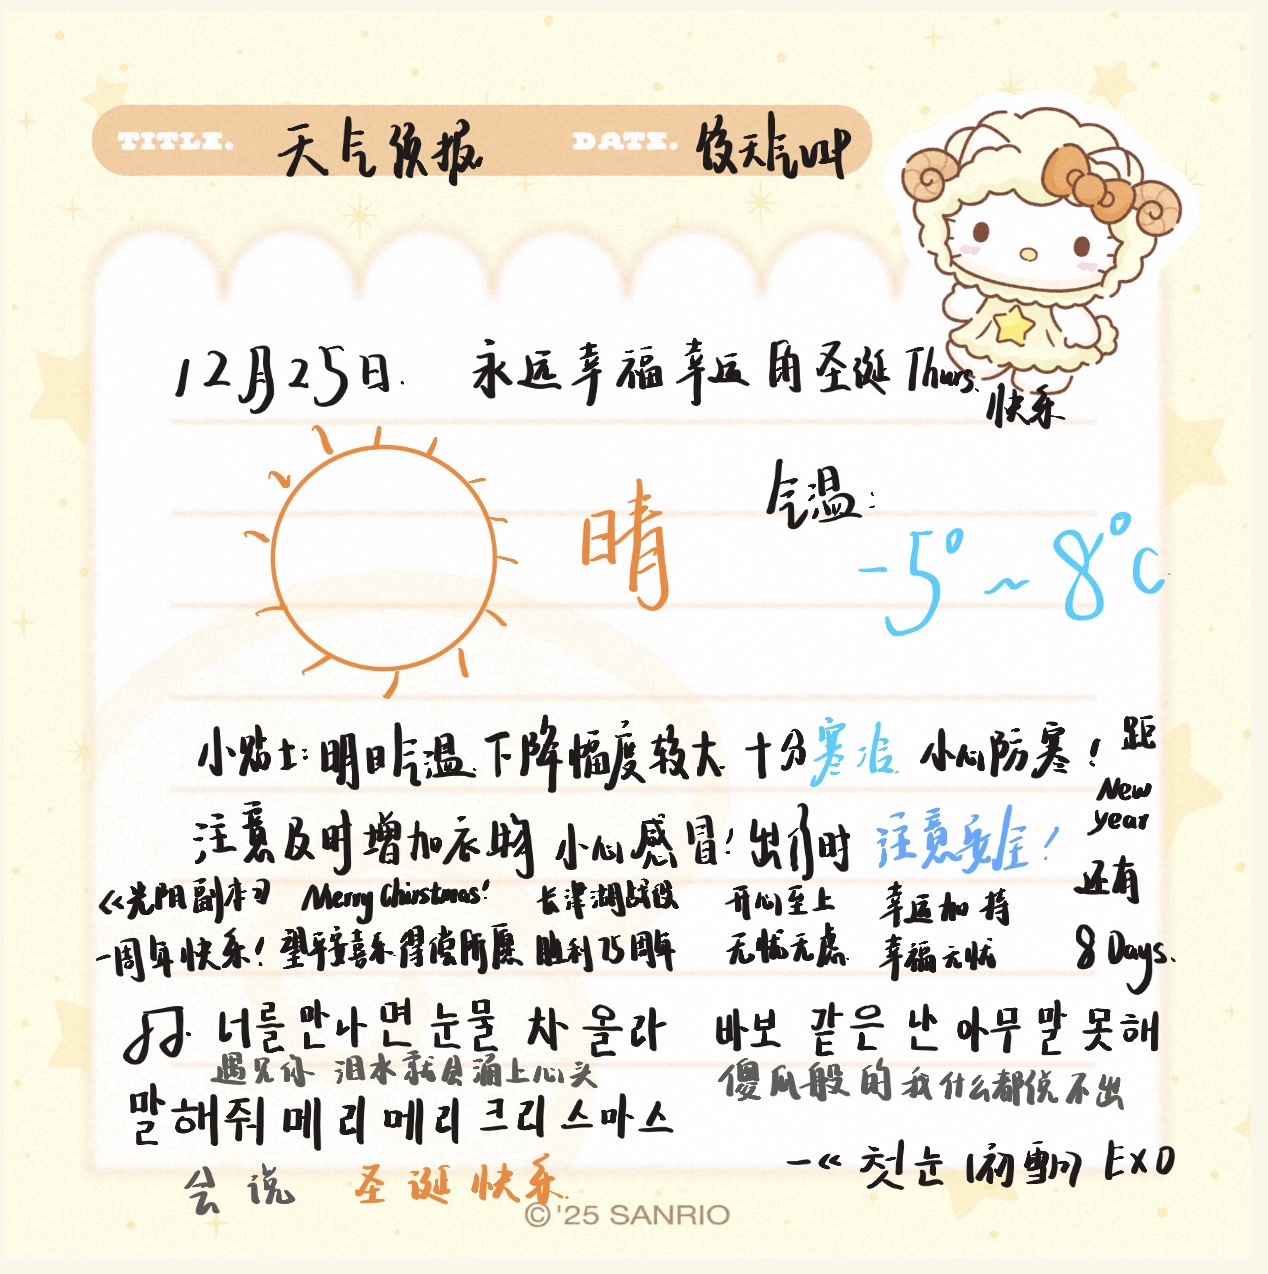 TITLE. 天气预报 DATE.
12月25日. 永远幸福幸运 的圣诞 Thurs.
快乐
晴 气温:
-5°~8°C
小贴士: 明日气温下降幅度较大 十分寒冷 小心防寒! 距
New year
注意及时增加衣物 小心感冒! 出行时 注意安全!
还有
《光阴副本》 Merry Chirstmas! 长津湖战役 开心至上 幸运加持
一周年快乐! 望平安喜乐得偿所愿 胜利75周年 无忧无虑 幸福无忧 8 Days.
너를 만나면 눈물 차 올라 바보 같은 난 아무 말 못해
遇见你 泪水就会涌上心头 傻瓜般的我什么都说不出
말해줘 메리 메리 크리스마스
—《첫눈 (初雪)》 EXO
会说 圣诞快乐.
© '25 SANRIO